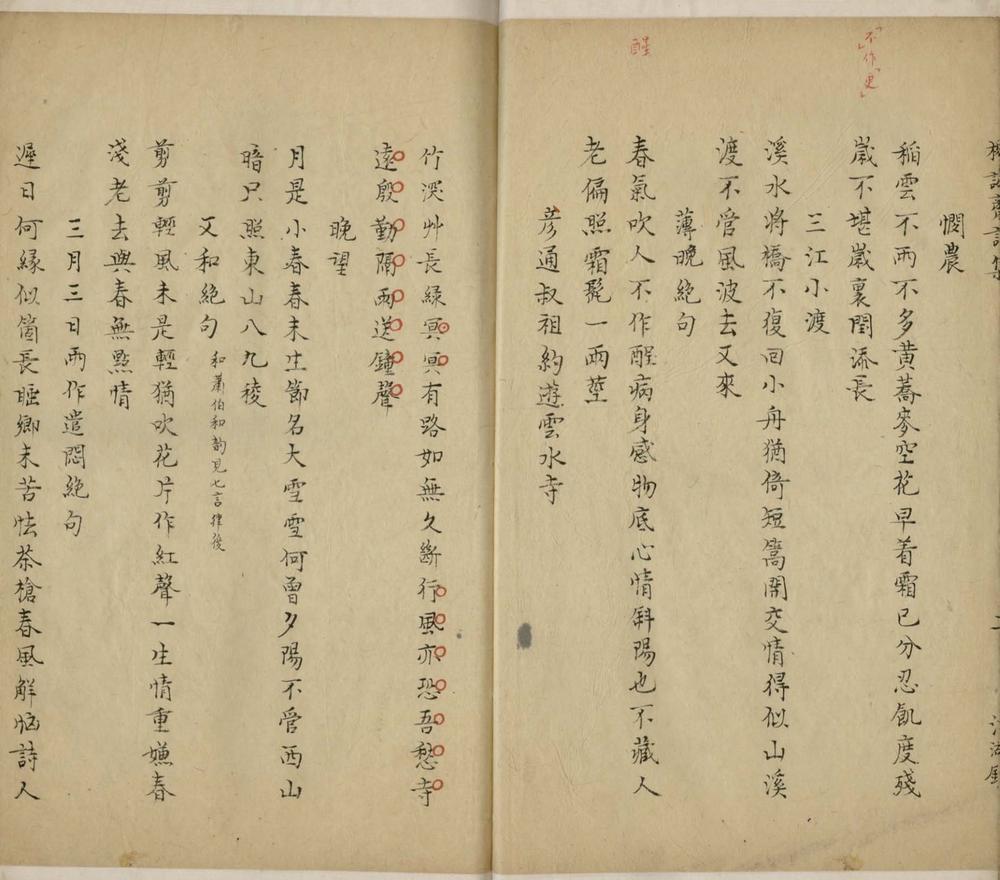 不作更
醒
憫農
稻雲不雨不多黄蕎麥空花早着霜已分忍飢度殘
嵗不堪嵗裏閏添長
三江小渡
溪水將橋不復回小舟猶倚短篙開交情得似山溪
渡不管風波去又來
薄晚絶句
春氣吹人不作醒病身感物底心情斜陽也不藏人
老偏照霜髭一兩莖
彦通叔祖約遊雲水寺
竹深艸長緑冥冥有路如無久斷行風亦恐吾愁寺
逺殷勤隔雨送鐘聲
晚望
月是小春春未生節名大雪雪何曾夕陽不管西山
暗只照東山八九稜
又和絶句 和蕭伯和韵見七言律後
剪剪輕風未是輕猶吹花片作紅聲一生情重嫌春
淺老去與春無㸃情
三月三日雨作遣悶絶句
遲日何縁似箇長睡鄉未苦怯茶槍春風解恼詩人